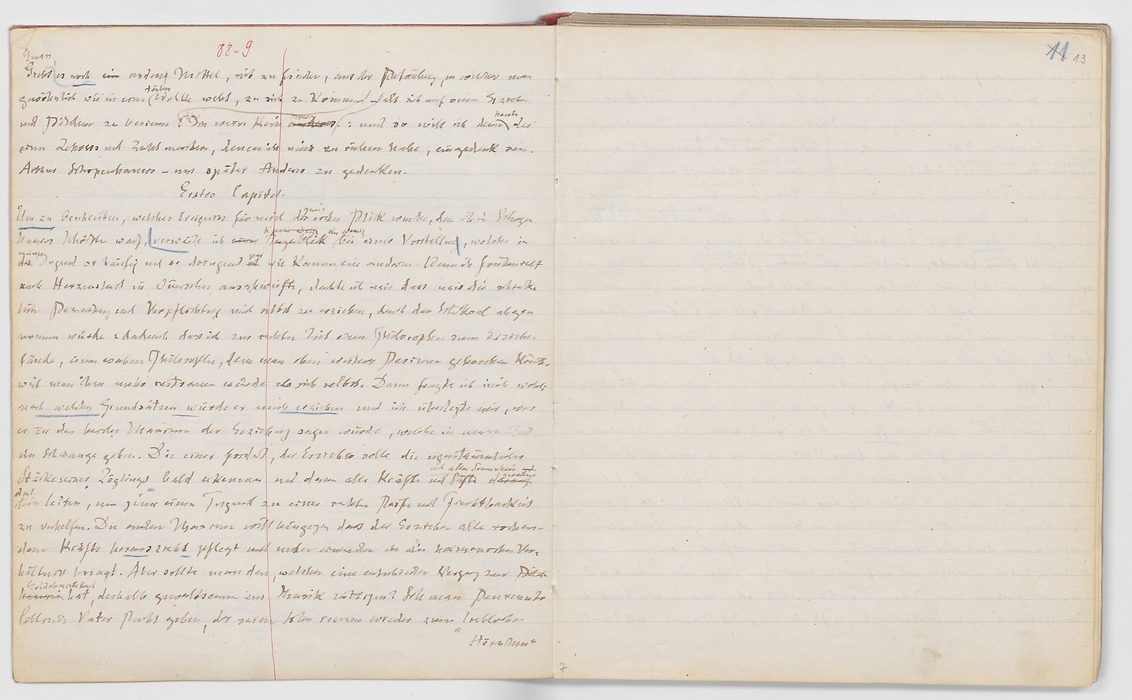 82-9
Giebt es noch ein anderes Mittel, sich zu finden, aus der Betäubung, in welcher man
gewöhnlich wie in einer
düstern
Wolke webt, zu sich zu kommen als sich auf seinen Erzieher
und Bildner zu besinnen? : und so will ich denn
heute
des
einen Lehrers und Zuchtmeisters, dessen ich mich zu rühmen habe, eingedenk sein.
Arthur Schopenhauers – um später Anderer zu gedenken.
Erstes Capitel.
Um zu beschreiben, welches Ereigniss für mich
jener
erste Blick wurde, den ich in Schopen-
hauers Schriften warf, verweile ich
ein wenig
bei einer Vorstellung, welche in
meiner
Jugend so häufig und so dringend
war
wie kaum eine andere. Wenn ich früherhin recht
nach Herzenslust in Wünschen ausschweifte, dachte ich mir dass mir die schreckliche
Bemühung und Verpflichtung mich selbst zu erziehen, durch das Schicksal abge-
nommen würde: dadurch dass ich zur rechten Zeit einen Philosophen zum Erzieher
fände, einen wahren Philosophen, dem man ohne weiteres Besinnen gehorchen könnte,
weil man ihm mehr vertrauen würde als sich selbst. Dann fragte ich mich wohl:
nach welchen Grundsätzen würde er mich erziehen und ich überlegte mir, was
er zu den beiden Maximen der Erziehung sagen würde, welche in unserer Zeit
im Schwange gehen. Die eine fordert, der Erzieher solle die eigenthümliche
Stärke seines Zöglings bald erkennen und dann alle Kräfte und Säfte
und allen Sonnenschein
dort
hin leiten, um jener einen Tugend zu einer rechten Reife und Fruchtbarkeit
zu verhelfen. Die andre Maxime will hingegen dass der Erzieher alle vorhan-
denen Kräfte heranzieht pflegt und unter einander in ein harmonisches Ver-
hältniss bringt. Aber sollte man den, welcher eine entschiedne Neigung zur
Goldschmiedekunst
hat, deshalb gewaltsam zur Musik nöthigen? Soll man Benvenuto
Cellini's Vater Recht geben, der seinen Sohn immer wieder zum "lieblichen
Hörnchen"
11 13
7